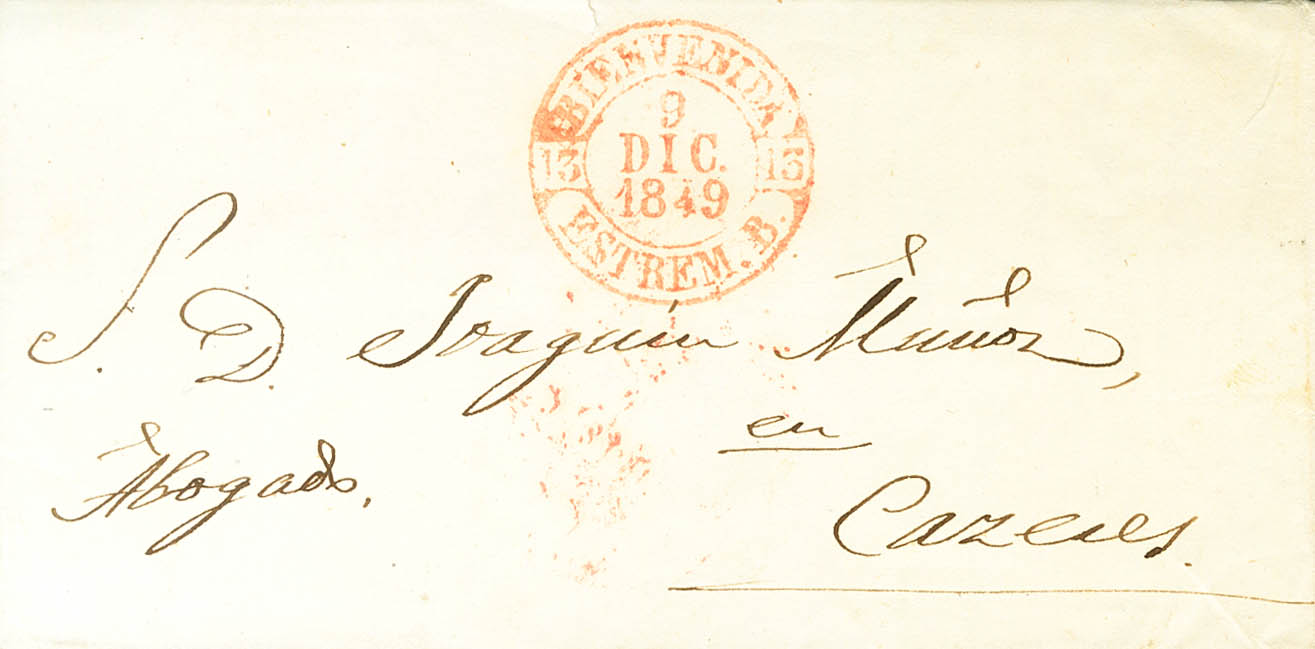 BIENVENIDA
9
13 DIC. 13
1849
ESTREM. B.
S. D. Joaquín Muñoz,
en
Abogado,
Cazeres.